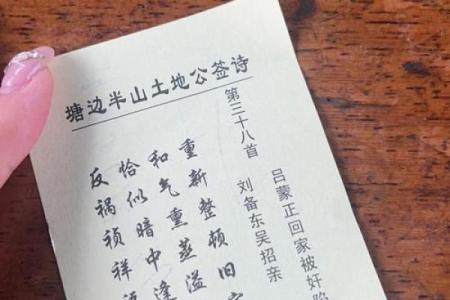 塘边半山土地公签诗
第三十八首 刘备东吴招亲
吕蒙正回家被奸陷
重新整顿旧
和气熏蒸溢
恰似暗中逢
反祸祯祥